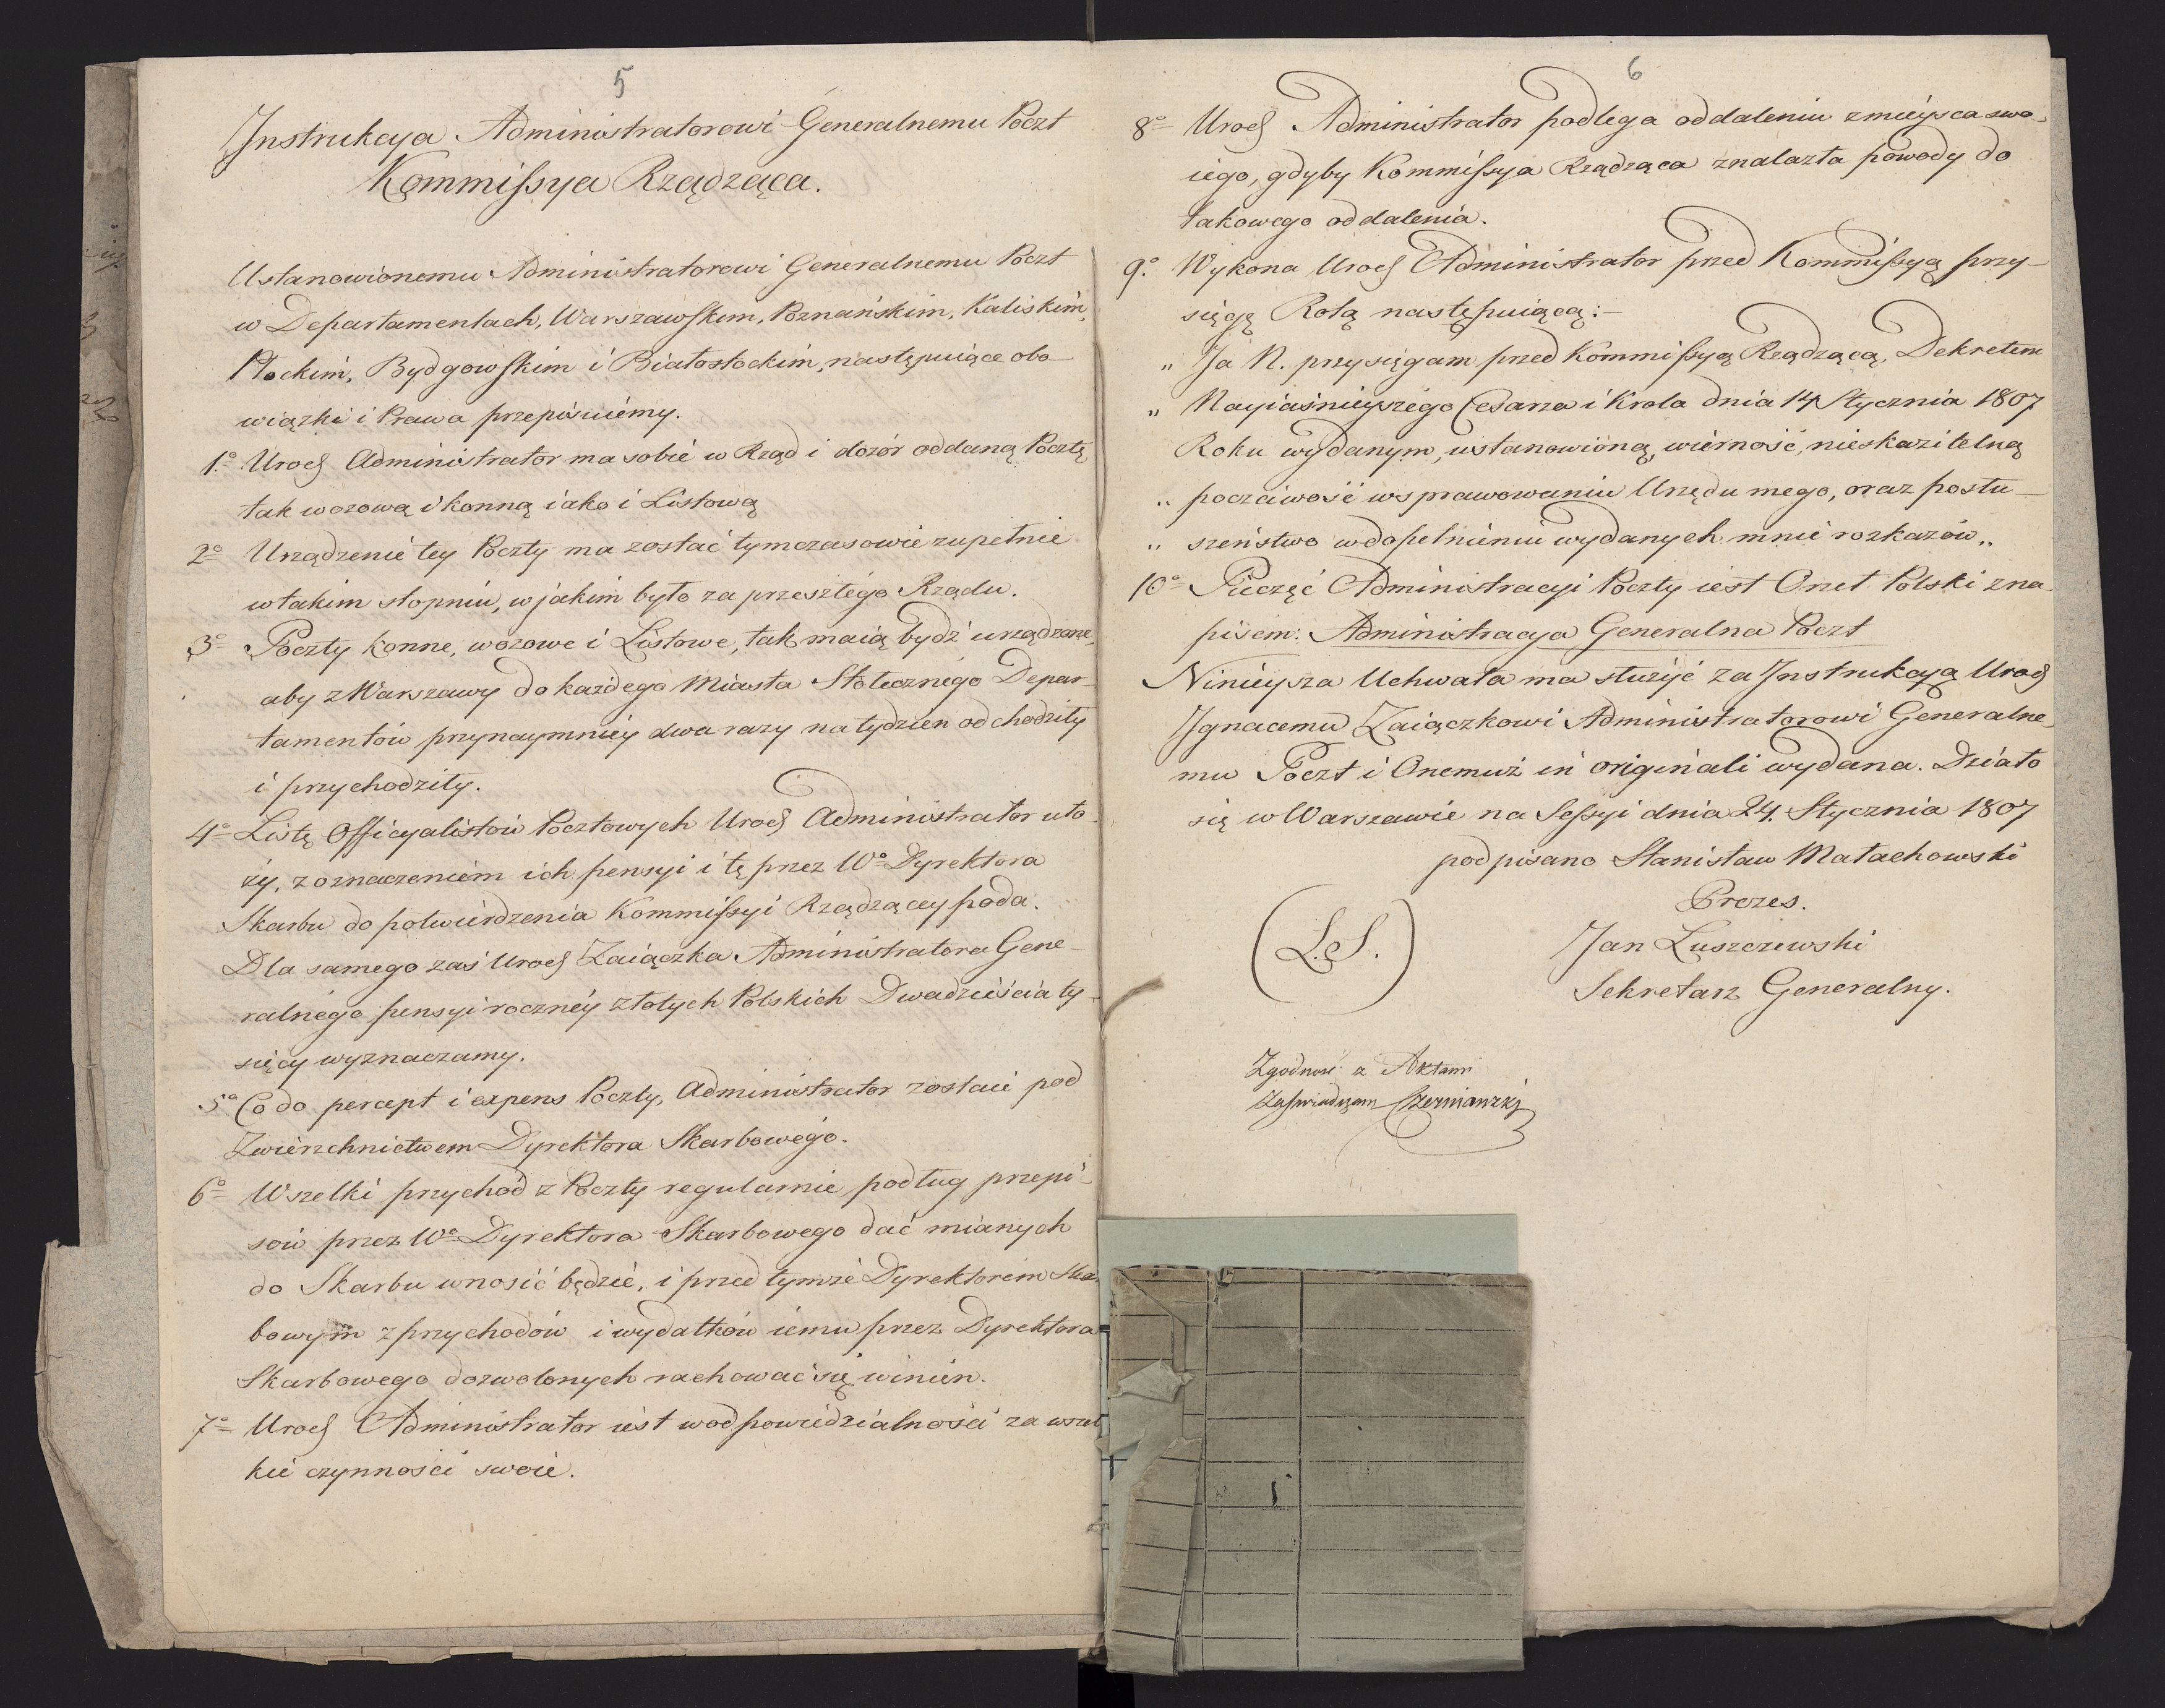 5
Instrukcya Administratorowi Generalnemu Poczt
Kommissya Rządząca.
Ustanowionemu Administratorowi Generalnemu Poczt
w Departamentach, Warszawskim, Poznańskim, Kaliskim,
Płockim, Bydgowskim i Białostockim, następuiące obo-
wiązki i Prawa przepisuiemy.
1.º Urod Administrator ma sobie w Rząd i dozór oddaną Pocztę
tak wozową i konną iako i Listową
2º Urządzenie tey Poczty ma zostać tymczasowie zupełnie
w takim stopniu, w jakim było za przeszłego Rządu.
3º Poczty konne, wozowe i Listowe, tak maią bydź urządzone,
aby z Warszawy do każdego Miasta Stołecznego Depar-
tamentów przynaymniéy dwa razy na tydzień odchodziły
i przychodziły.
4º Listę Officyalistów Pocztowych Urod Administrator uło-
ży, z oznaczeniem ich pensyi i tę przez Wº Dyrektora
Skarbu do potwierdzenia Kommissyi Rządzącey poda.
Dla samego zaś Urod Zaiączka Administratora Gene-
ralnego pensyi roczney złotych Polskich Dwadzieścia ty-
sięcy wyznaczamy.
5º Co do percept i expens Poczty, Administrator zostaie pod
Zwierzchnictwem Dyrektora Skarbowego.
6º Wszelki przychód z Poczty regularnie podług przepi-
sów przez Wº Dyrektora Skarbowego dać mianych
do Skarbu wnosić będzie, i przed tymże Dyrektorem Skar
bowym z przychodów i wydatków iemu przez Dyrektora
Skarbowego dozwolonych rachować się winien.
7º Urod Administrator iest w odpowiedzialności za wszel
kie czynności swoie.
6
8º Urod Administrator podlega oddaleniu z mieysca swo-
iego, gdyby Kommissya Rządząca znalazła powody do
takowego oddalenia.
9º. Wykona Urod Administrator przed Kommissyą przy-
sięgę Rotą następuiącą:-
„ Ja N. przysięgam przed Kommissyą Rządzącą, Dekretem
„ Nayiaśnieyszego Cesarza i Krola dnia 14 Stycznia 1807
Roku wydanym, ustanowioną, wierność, nieskazitelną
„ poczciwość w sprawowaniu Urzędu mego, oraz posłu-
„ szeństwo w dopełnieniu wydanych mnie rozkazów „
10º Pieczęć Administracyi Poczty iest Orzeł Polski z na-
pisem: Administracya Generalna Poczt
Ninieysza Uchwała ma służyć za Instrukcyą Urod
Ignacemu Zaiączkowi Administratorowi Generalne-
mu Poczt i Onemuż in originali wydana. Działo
się w Warszawie na Sessyi dnia 24. Stycznia 1807
podpisano Stanisław Małachowski
Prezes.
(L.S.)
Jan Łuszczewski
Sekretarz Generalny.
Zgodność z Aktami
Zaświadczam